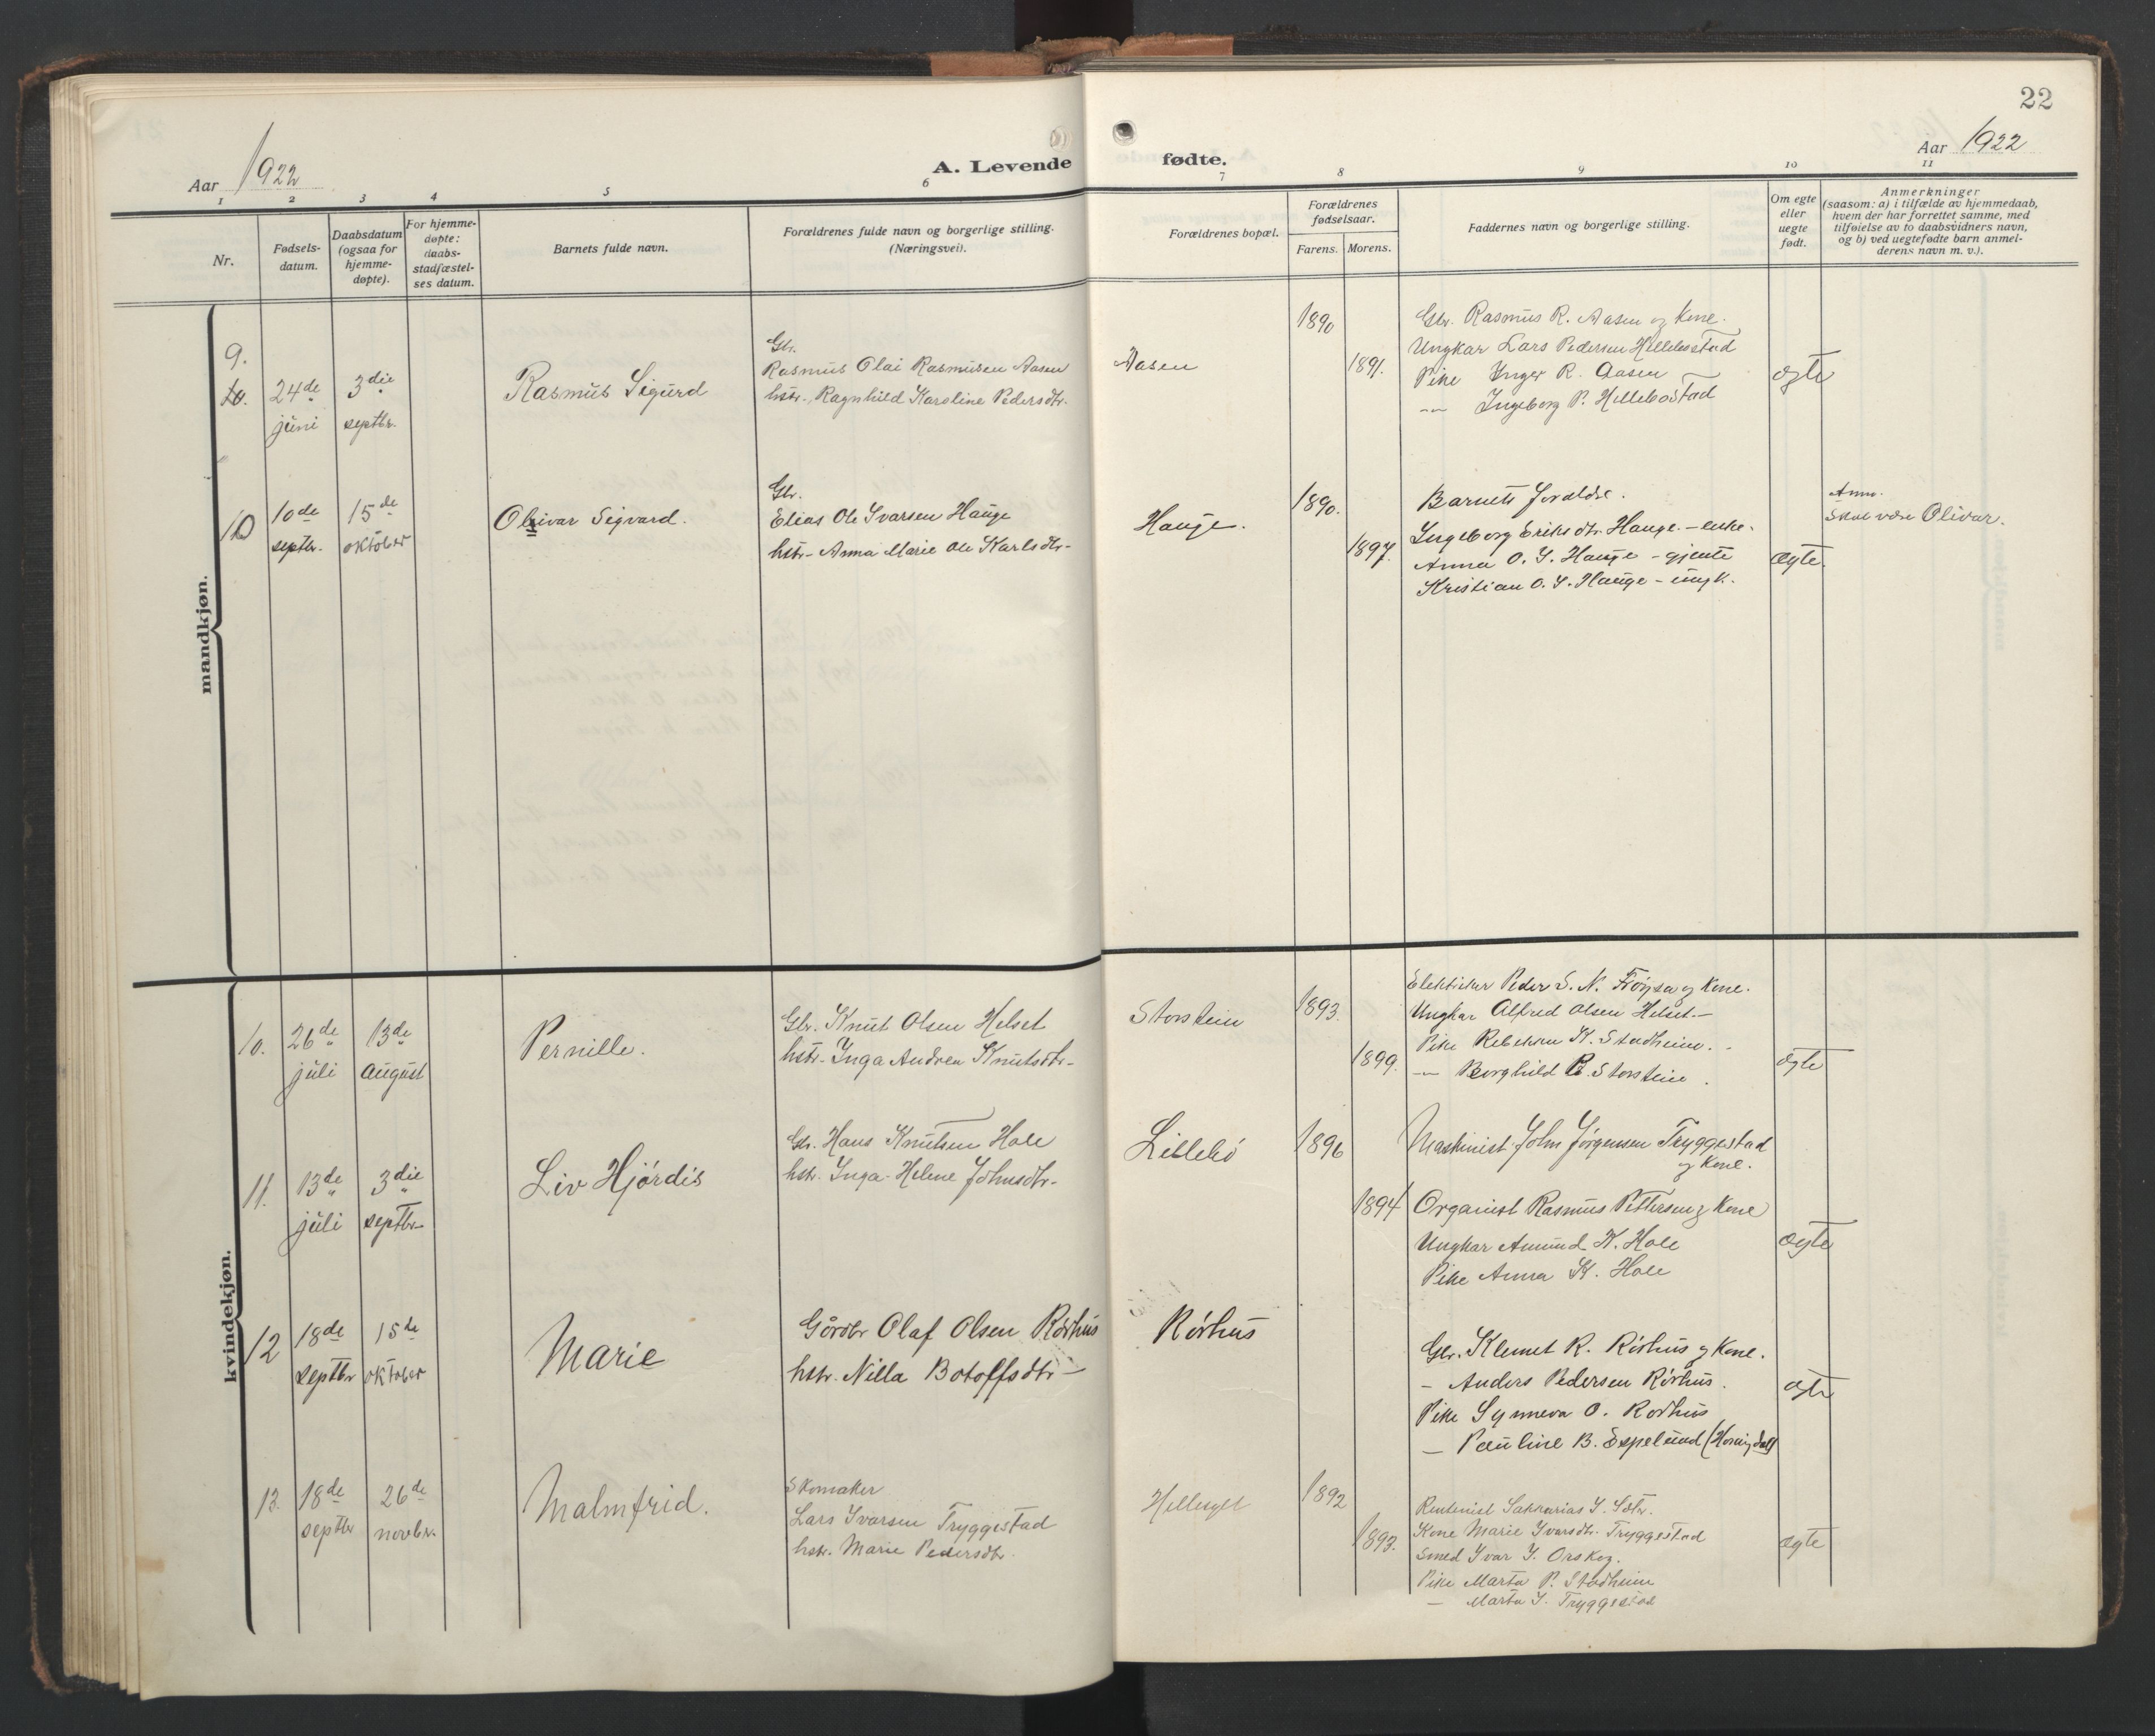 22
Aar 1922
A. Levende fødte.
Aar 1922
1 2 3 4 5 6 7 8 9 10 11
Nr.
Fødsels-
datum.
Daabsdatum
(ogsaa for
hjemme-
døpte).
For hjemme-
døpte:
daabs-
stadfæstel-
ses datum.
Barnets fulde navn.
Forældrenes fulde navn og borgerlige stilling.
(Næringsvei).
Forældrenes bopæl.
Forældrenes
fødselsaar.
Farens. Morens.
Faddernes navn og borgerlige stilling.
Om egte
eller
uegte
født.
Anmerkninger
(saasom: a) i tilfælde av hjemmedaab,
hvem der har forrettet samme, med
tilføielse av to daabsvidners navn,
og b) ved uegtefødte barn anmel-
derens navn m. v.).
mandkjøn.
9.
10.
24de
juni
3die
septbr.
Rasmus Sigurd
Gbr.
Rasmus Olai Rasmusen Aasen
hstr. Ragnhild Karoline Pedersdtr.
Aasen
1890
1891.
Gbr. Rasmus R. Aasen og Kone.
Ungkar Lars Pedersen Hellebostad
Pike Inger R. Aasen
-"- Ingeborg P. Hellebostad
egte
10
10de
septbr.
15de
oktober
Olivar Sigvard.
Gbr.
Elias Ole Ivarsen Hauge
hstr. Anna Marie Ole Karlsdtr.
Hauge.
1890.
1897.
Barnets foraldre.
Ingeborg Eriksdtr. Hauge. - enke.
Anna O. I. Hauge - gjente
Kristian O. I. Hauge - ungk.
egte.
Anm.
Skal være Olivar.
kvindekjøn.
10.
26de
juli
13de
august
Pernille.
Gbr. Knut Olsen Helset
hstr. Inga Andrea Knutsdtr.
Storstein
1893.
1899.
Peder S. N. Frøysa og Kone.
Ungkar Alfred Olsen Helset.
Pike Rebekka K. Stadheim.
-"- Borghild R. Storstein.
egte
11.
13de
juli
3die
septbr.
Liv Hjórdis
Gbr. Hans Knutsen Hole
hstr. Inga Helene Johnsdtr.
Lillebó
1896
1894
Maskinist John Jörgensen Tryggestad
og Kone.
Organist Rasmus Pettersen og Kone
Ungkar Amund K. Hole
Pike Anna K. Hole
egte
12
18de
septbr
15de
oktober
Marie
Gårdbr Olaf Olsen Rórhus
hstr. Nilla Botolfsdtr
Rórhus
Gbr. Klemet R. Rórhus og Kone.
- Anders Pedersen Rórhus.
Pike Synneva O. Rórhus
- Pauline B. Espelund (Horningdal)
egte
13.
18de
septbr
26de
novbr.
Malmfrid.
Skomaker
Lars Ivarsen Tryggestad
hstr. Marie Pedersdtr.
Hellesylt
1892
1893.
Rentenist Sakkarias I. Sæter.
Kone Marie Ivarsdtr. Tryggestad
Smed Ivar I. Ørskog.
Pike Marta P. Stadheim
- Marta I. Tryggestad
egte